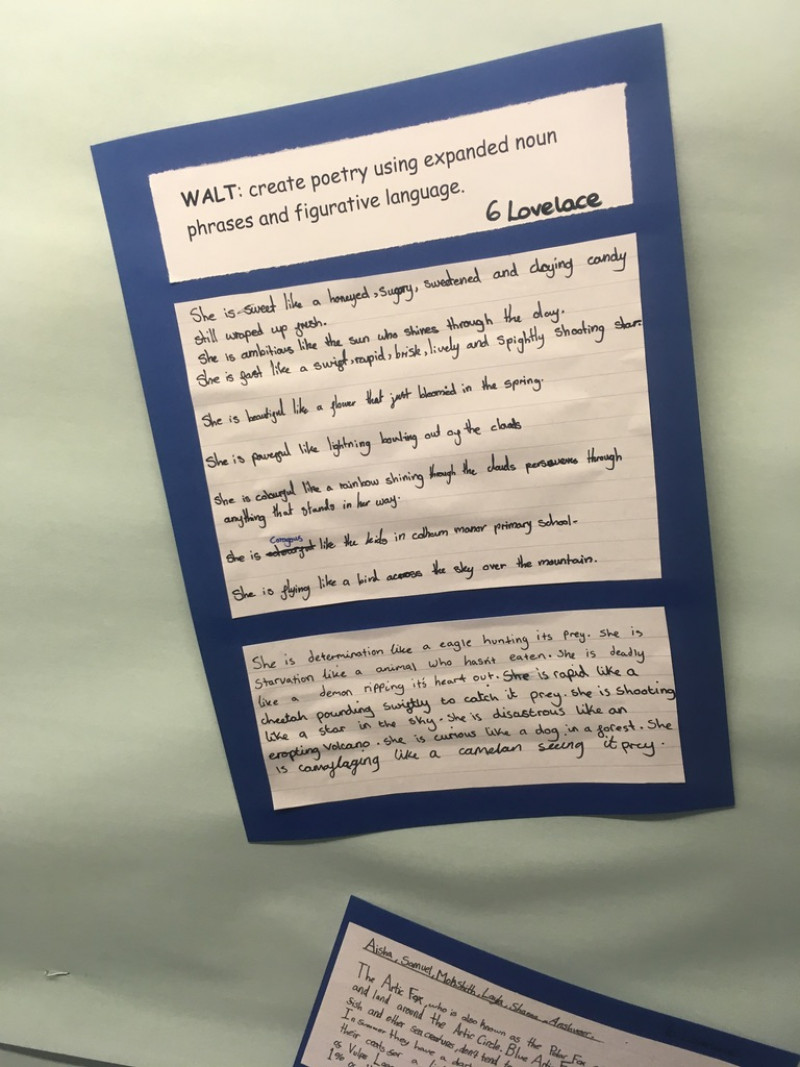 WALT: create poetry using expanded noun
phrases and figurative language.
6 Lovelace
She is sweet like a honeyed, sugary, sweetened and cloying candy
still wraped up fresh.
She is ambitious like the sun who shines through the day.
She is fast like a swift, rapid, brisk, lively and spightly shooting star.
She is beautiful like a flower that just bloomied in the spring.
She is powerful like lightning bowling out of the clouds
She is colourful like a rainbow shining through the clouds perseveres through
anything that stands in her way.
Corugous
She is like the kids in calhum manor primary school.
She is flying like a bird across the sky over the mountain.
She is determination like a eagle hunting its prey. She is
Starvation like a animal who hasn't eaten. She is deadly
like a demon ripping it's heart out. She is rapid like a
cheetah pounding swiftly to catch it prey. She is Shooting
like a star in the sky. She is disastrous like an
eropting volcano. She is curious like a dog in a forest. She
is camaflaging like a camelan seeing it prey.
Aisha, Samuel, Layla,
The Artic Fox, who is also known as the Polar Fox
and land around the Artic Circle. Blue Artic
fish and other sea creatures, don't tend to
In summer they have a dark
their coats for a
as Vulpe
1%